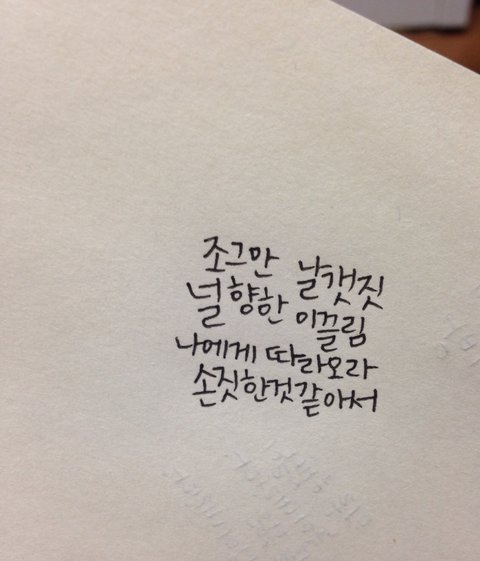 조그만 날갯짓
널 향한 이끌림
나에게 따라오라
손짓한것같아서